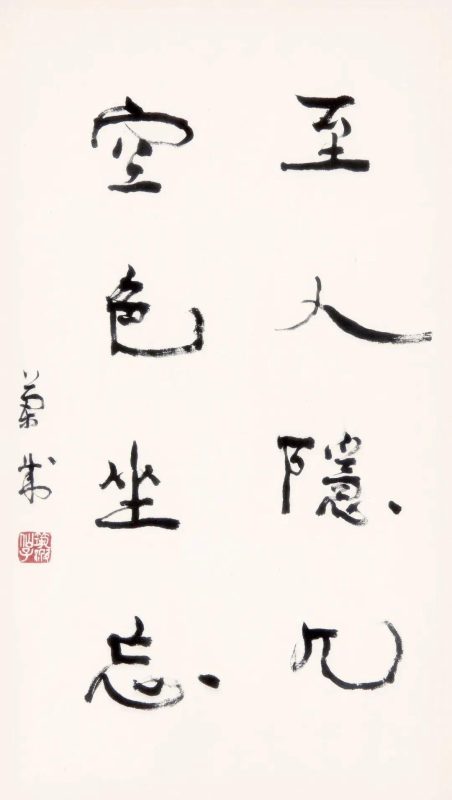 至人隱几
空色坐忘